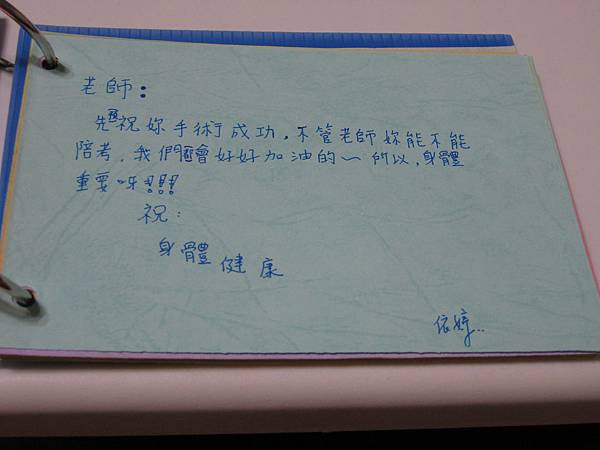 老師：
先祝妳手術成功，不管老師妳能不能
陪考，我們會好好加油的～所以，身體
重要呀!!!!
祝：
身體健康
依婷..